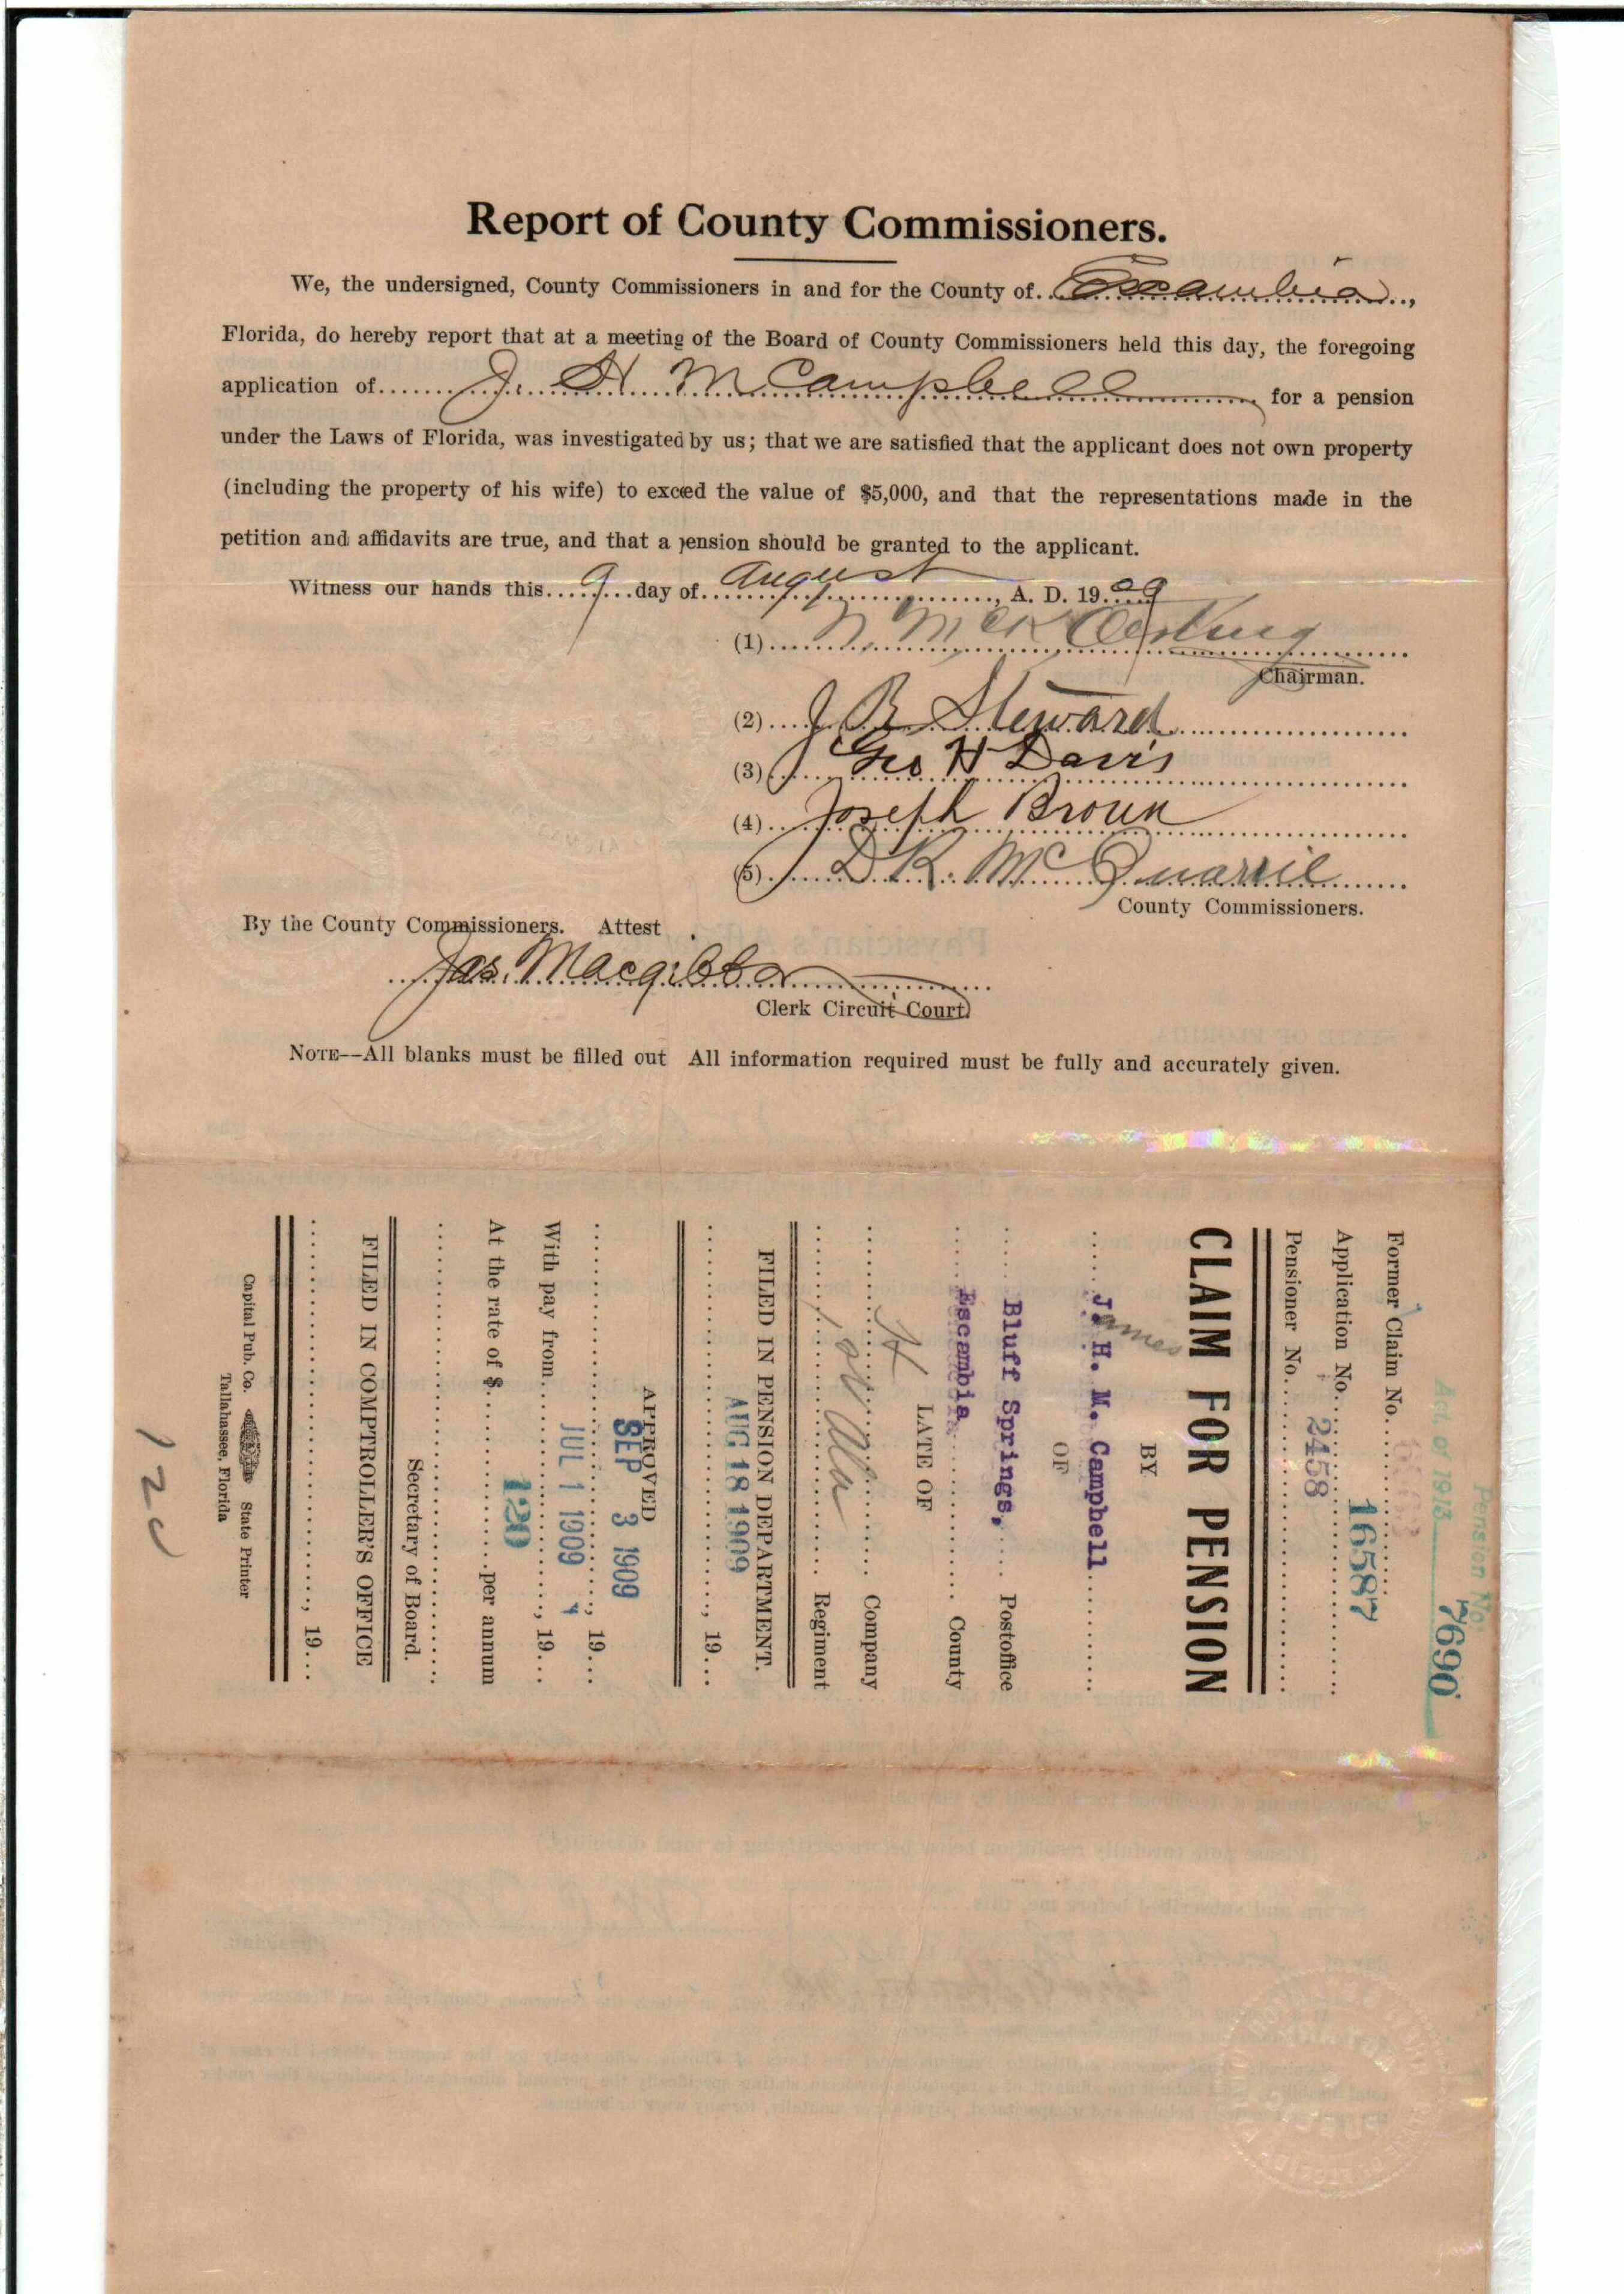 Report of County Commissioners.
We, the undersigned, County Commissioners in and for the County of Escambia,
Florida, do hereby report that at a meeting of the Board of County Commissioners held this day, the foregoing
application of J. H. M. Campbell for a pension
under the Laws of Florida, was investigated by us; that we are satisfied that the applicant does not own property
(including the property of his wife) to exceed the value of $5,000, and that the representations made in the
petition and affidavits are true, and that a pension should be granted to the applicant.
Witness our hands this 9 day of August, A. D. 1909
(1) N. McK
Chairman.
(2) J B Steward
(3) Geo H Davis
(4) Joseph Broun
(5) D. K. McQuarrie
County Commissioners.
By the County Commissioners. Attest
Jas. Macgibbon
Clerk Circuit Court
NOTE--All blanks must be filled out All information required must be fully and accurately given.
Pension No. 7690
Act of 1913
Former Claim No.
Application No. 16587
Pensioner No. 2458
CLAIM FOR PENSION
BY
James
J. H. M. Campbell
OF
Bluff Springs, Postoffice
Escambia County
LATE OF
H Company
1 Regiment
FILED IN PENSION DEPARTMENT.
AUG 18 1909, 19
APPROVED
SEP 3 1909, 19
With pay from JUL 1 1909, 19
At the rate of $ 120 per annum
Secretary of Board.
FILED IN COMPTROLLER'S OFFICE
, 19
Capital Pub. Co. State Printer
Tallahassee, Florida
120